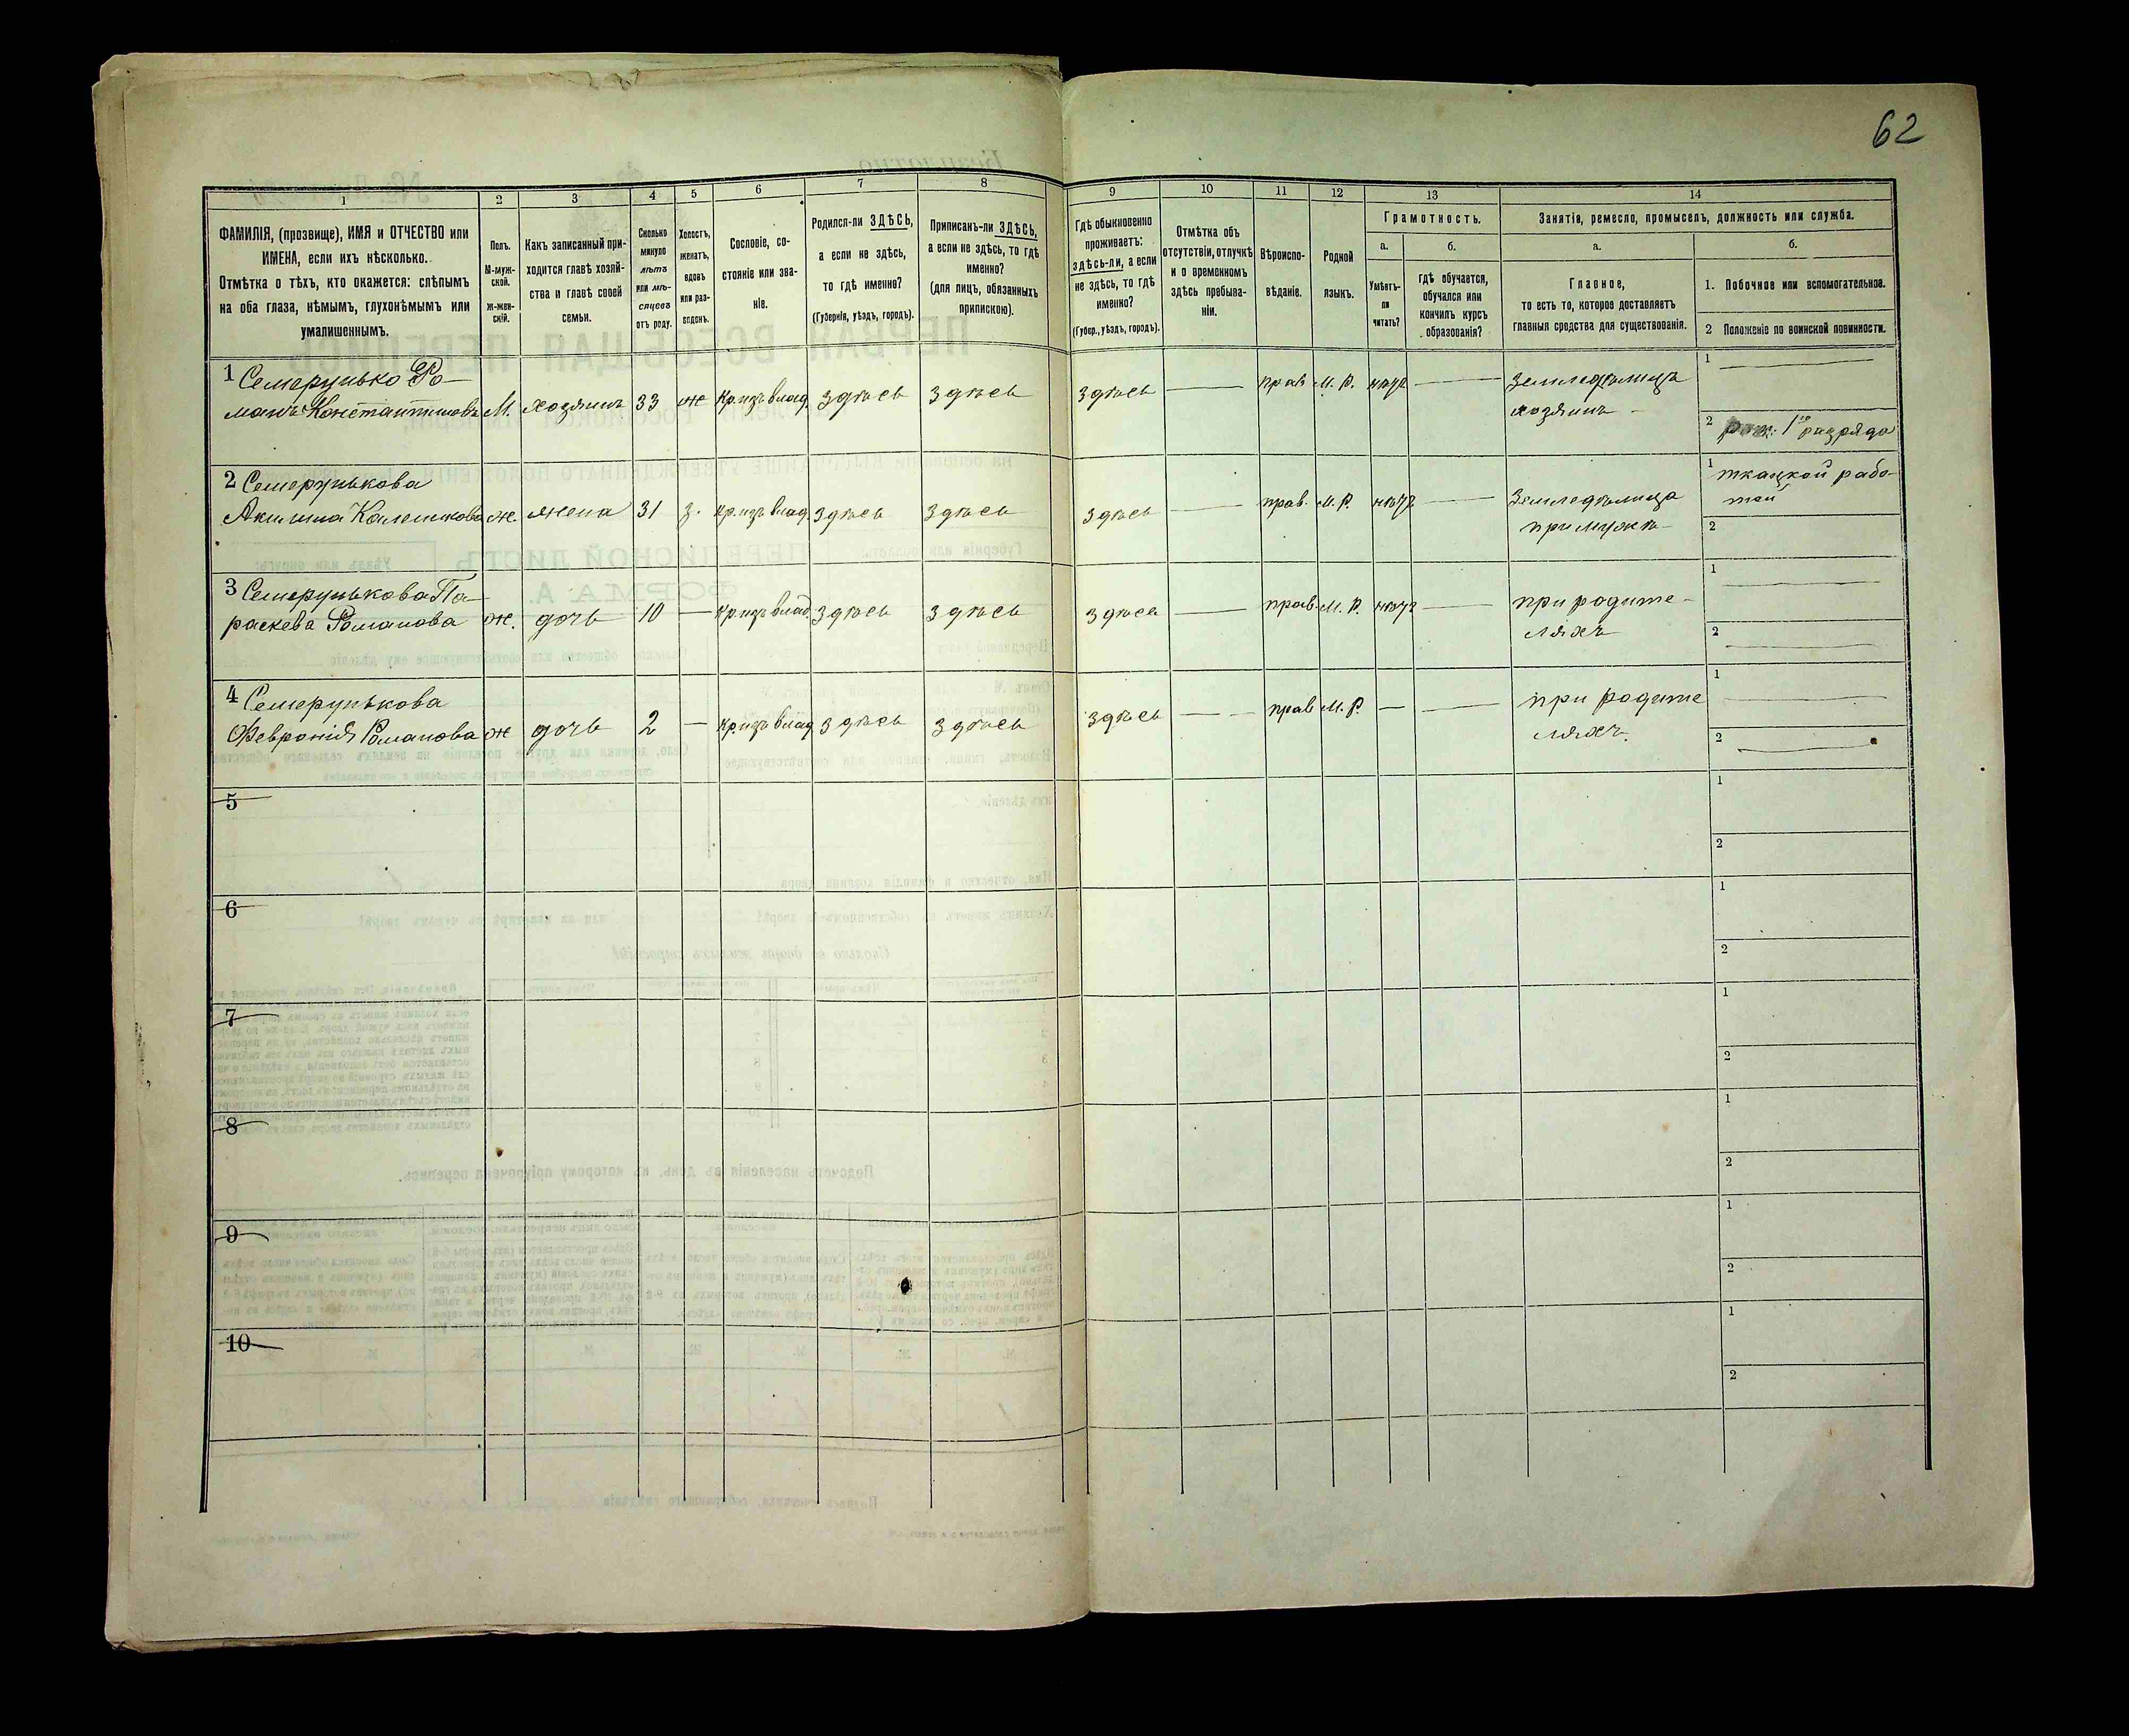 62
1
2
3
4
5
6
7
8
9
10
11
12
13
14
ФАМИЛІЯ, (прозвище), ИМЯ и ОТЧЕСТВО или
ИМЕНА, если ихъ нѣсколько.
Отмѣтка о тѣхъ, кто окажется: слѣпымъ
на оба глаза, нѣмымъ, глухонѣмымъ или
умалишеннымъ.
Полъ.
М-муж-
ской.
ж-жен-
скій.
Какъ записанный при-
ходится главѣ хозяй-
ства и главѣ своей
семьи.
Сколько
минуло
лѣтъ
или мѣ-
сяцевъ
отъ роду.
Холостъ,
женатъ,
вдовъ
или раз-
веденъ.
Сословіе, со-
стояніе или зва-
ніе.
Родился-ли ЗДѢСЬ,
а если не здѣсь,
то гдѣ именно?
(Губернія, уѣздъ, городъ).
Приписанъ-ли ЗДѢСЬ,
а если не здѣсь, то гдѣ
именно?
(для лицъ, обязанныхъ
припискою).
Гдѣ обыкновенно
проживаетъ:
здѣсь-ли, а если
не здѣсь, то гдѣ
именно?
(Губер., уѣздъ, городъ).
Отмѣтка объ
отсутствіи, отлучкѣ
и о временномъ
здѣсь пребыва-
ніи.
Вѣроиспо-
вѣданіе.
Родной
языкъ.
Грамотность.
а.
Умѣетъ-
ли
читать?
б.
гдѣ обучается,
обучался или
кончилъ курсъ
образованія?
Занятія, ремесло, промыселъ, должность или служба.
а.
Главное,
то есть то, которое доставляетъ
главныя средства для существованія.
б.
1. Побочное или вспомогательное.
2 Положеніе по воинской повинности.
1 Семерунько Ро-
манъ Константиновъ М. хозяинъ 33 ж кр. изъ влад. здѣсь здѣсь здѣсь — прав М. Р. нѣтъ — Земледѣлецъ
хозяинъ
1 —
2 1го разряда
2 Семерунькова
Ж. жена 31 з. кр. изъ влад. здѣсь здѣсь здѣсь — прав. М. Р. нѣтъ — Земледѣлица
при мужѣ
1 ткацкой рабо-
той
2
3 Семерунькова Па-
раскева Романова ж. дочь 10 — кр. изъ влад. здѣсь здѣсь здѣсь — прав. М. Р. нѣтъ — при родите-
ляхъ
1 —
2 —
4 Семерунькова
Февронія Романова ж дочь 2 — кр. изъ влад здѣсь здѣсь здѣсь — прав М. Р. — — при родите
ляхъ.
1 —
2 —
5
1
2
6
1
2
7
1
2
8
1
2
9
1
2
10
1
2